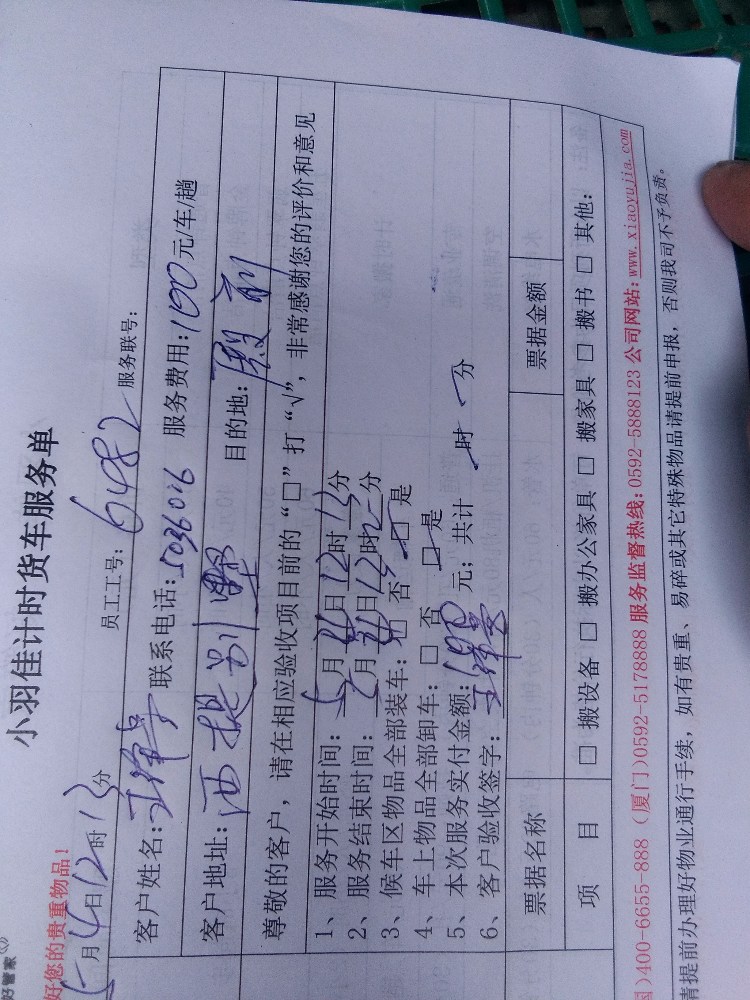 好管家
好您的贵重物品！
小羽佳计时货车服务单
5月4日12时13分 员工工号：6482 服务联号：
客户姓名： 联系电话：5036016 服务费用：100元/车/趟
客户地址：西堤别墅 目的地：殿前
尊敬的客户，请在相应验收项目前的“□”打“√”，非常感谢您的评价和意见
1、服务开始时间：5月4日12时13分
2、服务结束时间：5月 日 时 分
3、候车区物品全部装车：□ 否 □ 是
4、车上物品全部卸车：□ 否 □ 是
5、本次服务实付金额：100元；共计 时 分
6、客户验收签字：
票据名称 票据金额
项 目 □ 搬设备 □ 搬办公家具 □ 搬家具 □ 搬书 □ 其他：
国）400-6655-888 （厦门）0592-5178888 服务监督热线：0592-5888123 公司网站：www.xiaoyujia.com
请提前办理好物业通行手续，如有贵重、易碎或其它特殊物品请提前申报，否则我司不予负责。